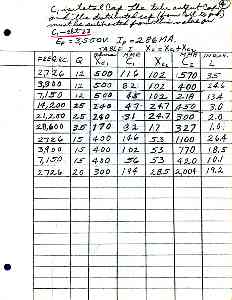 C, is total cap. the tube output cap
and the distributed cap from coil to
must be subtracted from this value
C₁
Ep = 3,500V. Ip = 286 MA.
TABLE I X₂ = XC₂ + XCL
FREQ KC. Q XC₁ C₁ XC₂ C₂ L
2726 12 500 116 102 570 35
3,900 12 500 82 102 400 24
7,150 12 500 45 102 218 13.4
14,200 25 240 47 24.7 450 3.0
21,200 25 240 31 24.7 300 2.0
28,600 35 170 32 17 327 1.0
2726 15 400 146 53 1100 26.4
3,900 15 400 102 53 770 18.5
7,150 15 400 56 53 420 10.1
2726 20 300 194 28.5 2,004 19.2